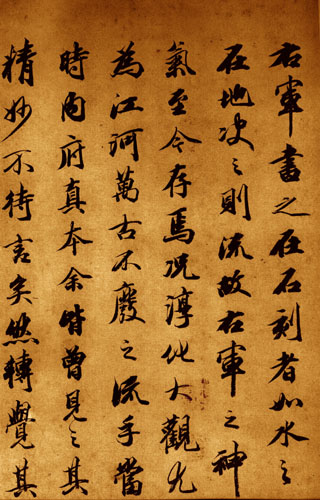 右軍書之在石刻者如水之
在地決之則流故右軍之神
氣至今存焉況淳化大觀尤
為江河萬古不廢之流乎當
時內府真本余皆曾見之其
精妙不待言矣然轉覺其